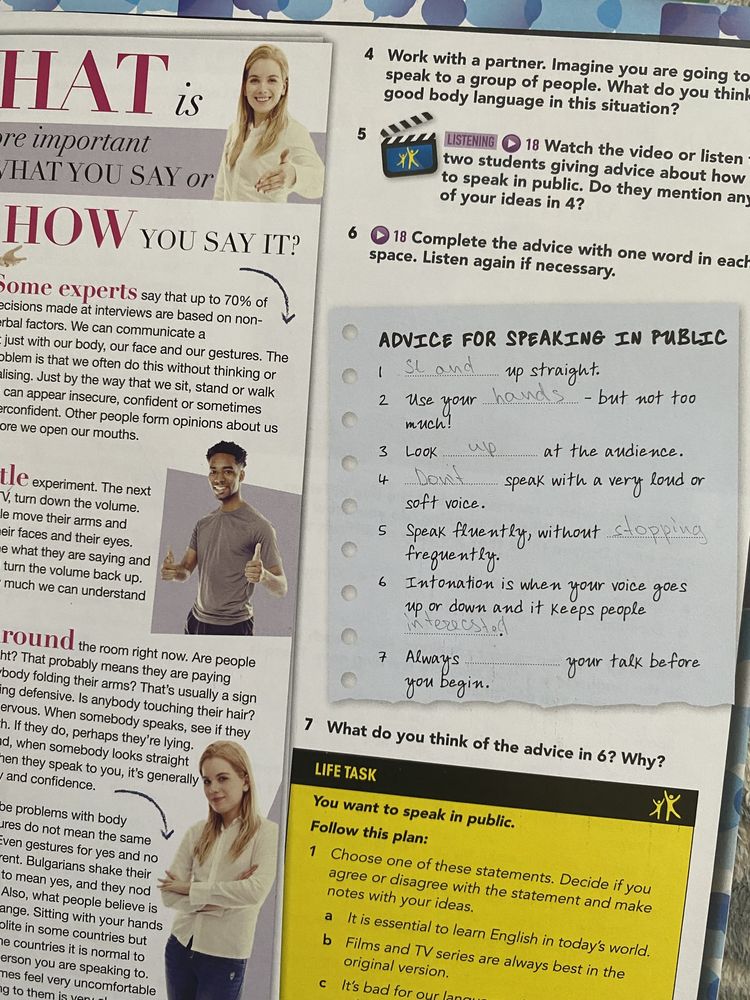 HAT is
re important
WHAT YOU SAY or
HOW YOU SAY IT?
Some experts say that up to 70% of
ecisions made at interviews are based on non-
erbal factors. We can communicate a
just with our body, our face and our gestures. The
oblem is that we often do this without thinking or
alising. Just by the way that we sit, stand or walk
can appear insecure, confident or sometimes
erconfident. Other people form opinions about us
ore we open our mouths.
tle experiment. The next
V, turn down the volume.
le move their arms and
eir faces and their eyes.
e what they are saying and
turn the volume back up.
much we can understand
round the room right now. Are people
ht? That probably means they are paying
ybody folding their arms? That's usually a sign
ing defensive. Is anybody touching their hair?
ervous. When somebody speaks, see if they
h. If they do, perhaps they're lying.
d, when somebody looks straight
hen they speak to you, it's generally
y and confidence.
be problems with body
ures do not mean the same
Even gestures for yes and no
rent. Bulgarians shake their
to mean yes, and they nod
Also, what people believe is
ange. Sitting with your hands
olite in some countries but
ne countries it is normal to
erson you are speaking to.
mes feel very uncomfortable
ng to them is very
4 Work with a partner. Imagine you are going to
speak to a group of people. What do you think
good body language in this situation?
5 LISTENING 18 Watch the video or listen
two students giving advice about how
to speak in public. Do they mention any
of your ideas in 4?
6 18 Complete the advice with one word in each
space. Listen again if necessary.
ADVICE FOR SPEAKING IN PUBLIC
1 Stand up straight.
2 Use your hands – but not too
much!
3 Look up at the audience.
4 Don't speak with a very loud or
soft voice.
5 Speak fluently, without stopping
frequently.
6 Intonation is when your voice goes
up or down and it keeps people
interecsted.
7 Always ............ your talk before
you begin.
7 What do you think of the advice in 6? Why?
LIFE TASK
You want to speak in public.
Follow this plan:
1 Choose one of these statements. Decide if you
agree or disagree with the statement and make
notes with your ideas.
a It is essential to learn English in today's world.
b Films and TV series are always best in the
original version.
c It's bad for our langu